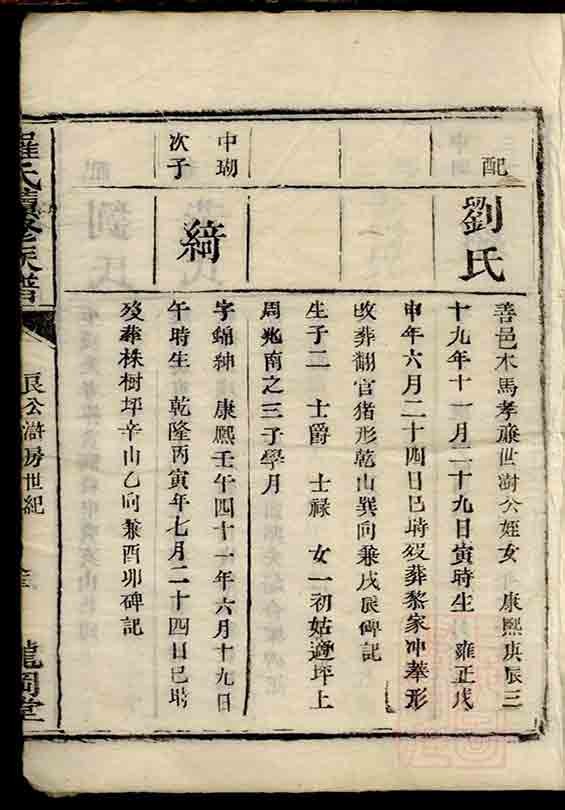 配
劉氏
善邑木馬孝廉世澍公姪女 康熙庚辰三
十九年十一月二十九日寅時生 雍正戊
申年六月二十四日巳時歿葬黎家冲峯形
改葬翻官猪形乾山巽向兼戌辰碑記
生子二 士爵 士祿 女一初姑適坪上
周兆南之三子學月
中瑚
次子
綺
字錦紳 康熙壬午四十一年六月十九日
午時生 乾隆丙寅年七月二十四日巳時
歿葬株樹坪辛山乙向兼酉卯碑記
羅氏續修族譜
良公濟房世紀
龍岡堂